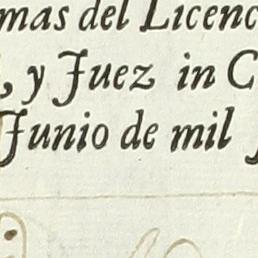 mas del Licenc
, y Juez in C
Junio de mil